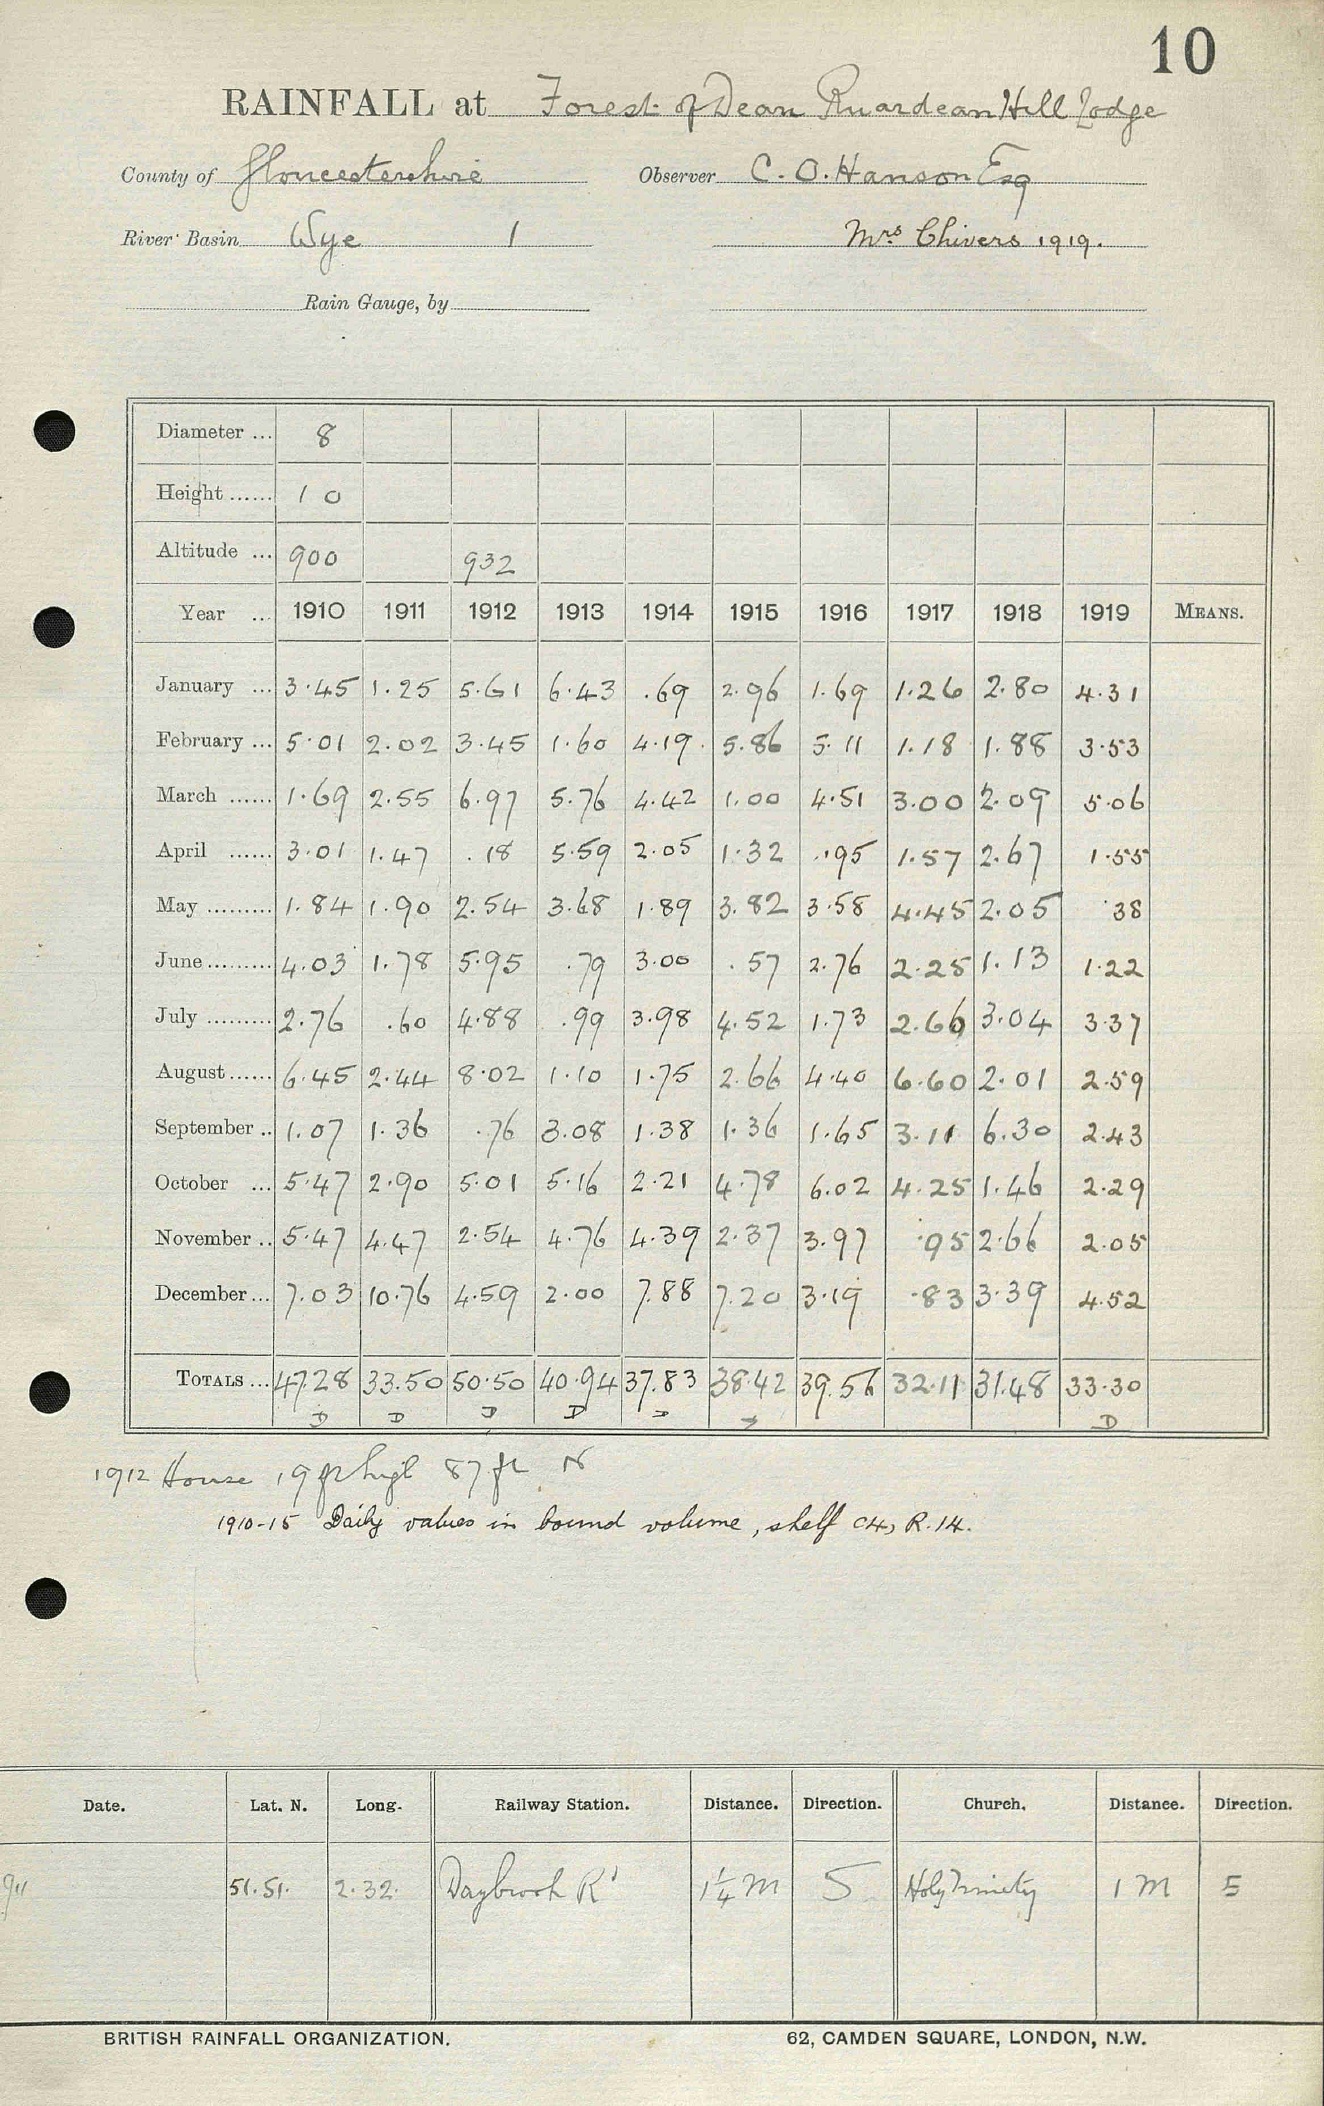 10
RAINFALL at Forest of Dean Ruardean Hill Lodge
County of Gloucestershire Observer C. O. Hanson Esq
River Basin Wye 1 Mrs Chivers 1919.
Rain Gauge, by
Diameter ... 8
Height ...... 10
Altitude ... 900 932
Year ... 1910 1911 1912 1913 1914 1915 1916 1917 1918 1919 MEANS.
January ... 3.45 1.25 5.61 6.43 .69 2.96 1.69 1.26 2.80 4.31
February ... 5.01 2.02 3.45 1.60 4.19 5.86 5.11 1.18 1.88 3.53
March ...... 1.69 2.55 6.97 5.76 4.42 1.00 4.51 3.00 2.09 5.06
April ...... 3.01 1.47 .18 5.59 2.05 1.32 .95 1.57 2.67 1.55
May ......... 1.84 1.90 2.54 3.68 1.89 3.82 3.58 4.45 2.05 .38
June ......... 4.03 1.78 5.95 .79 3.00 .57 2.76 2.25 1.13 1.22
July ......... 2.76 .60 4.88 .99 3.98 4.52 1.73 2.66 3.04 3.37
August ...... 6.45 2.44 8.02 1.10 1.75 2.66 4.40 6.60 2.01 2.59
September .. 1.07 1.36 .76 3.08 1.38 1.36 1.65 3.11 6.30 2.43
October ... 5.47 2.90 5.01 5.16 2.21 4.78 6.02 4.25 1.46 2.29
November .. 5.47 4.47 2.54 4.76 4.39 2.37 3.97 .95 2.66 2.05
December ... 7.03 10.76 4.59 2.00 7.88 7.20 3.19 .83 3.39 4.52
TOTALS ... 47.28 33.50 50.50 40.94 37.83 38.42 39.56 32.11 31.48 33.30
D D D D D D
1912 House 19 ft high 87 ft N
1910-15 Daily values in bound volume, shelf C4, R.14.
Date. Lat. N. Long. Railway Station. Distance. Direction. Church. Distance. Direction.
51.51. 2.32. 1¼ m S Holy Trinity 1 m S
BRITISH RAINFALL ORGANIZATION. 62, CAMDEN SQUARE, LONDON, N.W.